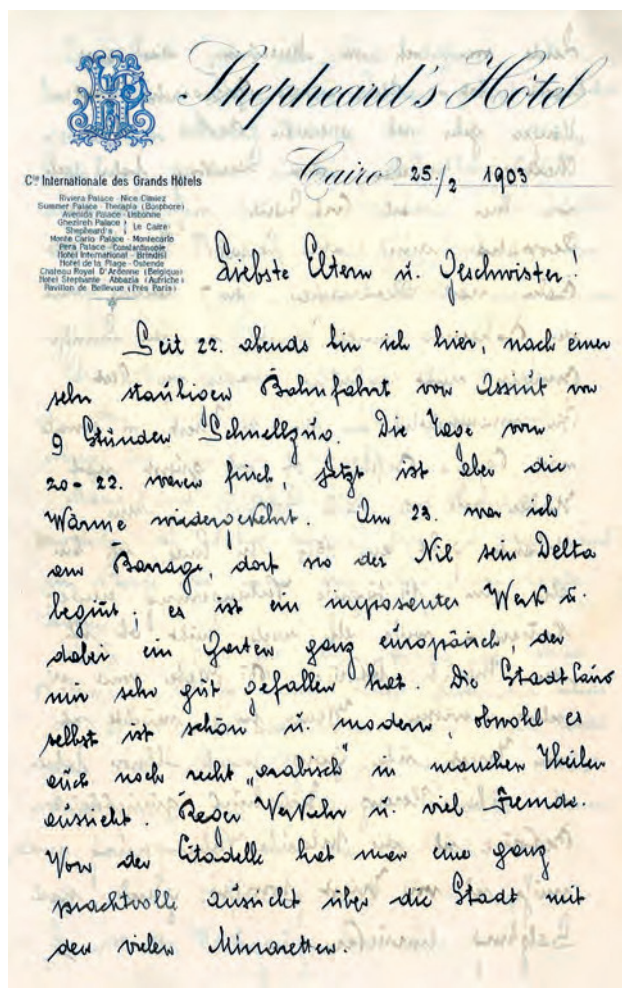 Shepheard's Hôtel
Cairo 25./2 1903
Cie Internationale des Grands Hôtels
Riviera Palace - Nice Cimiez
Summer Palace - Therapia (Bosphore)
Avenida Palace - Lisbonne
Ghezireh Palace } Le Caire
Shepheard's
Monte Carlo Palace - Montecarlo
Pera Palace - Constantinople
Hotel International - Brindisi
Hotel de la Plage - Ostende
Chateau Royal D'Ardenne (Belgique)
Hotel Stephanie - Abbazia (Autriche)
Pavillon de Bellevue (Près Paris)
Liebste Eltern u. Geschwister!
Seit 22. abends bin ich hier, nach einer
sehr staubigen Bahnfahrt von Assiut von
9 Stunden Schnellzug. Die Tage vom
20-22. waren frisch, jetzt ist aber die
Wärme wiedergekehrt. Am 23. war ich
am Barrage, dort wo der Nil sein Delta
begint; es ist ein imposantes Werk u.
dabei ein Garten ganz europäisch, der
mir sehr gut gefallen hat. Die Stadt Cairo
selbst ist schön u. modern, obwohl es
auch noch recht „arabisch" in manchen Theilen
aussieht. Reger Verkehr u. viel Fremde.
Von der Citadelle hat man eine ganz
prachtvolle aussicht über die Stadt mit
den vielen Minaretten.